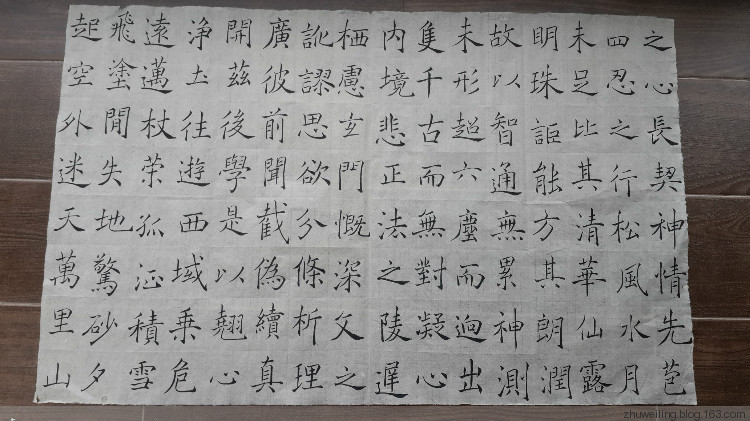 之心長契神情先苞
四忍之行松風水月
未足比其清華仙露
明珠詎能方其朗潤
故以智通無累神測
未形超六塵而迥出
隻千古而無對凝心
內境悲正法之陵遲
栖慮玄門慨深文之
訛謬思欲分條析理
廣彼前聞截偽續真
開茲後學是以翹心
净土往遊西域乘危
遠邁杖策孤征積雪
飛塗閒失地驚砂夕
起空外迷天萬里山
zhuweiling.blog.163.com